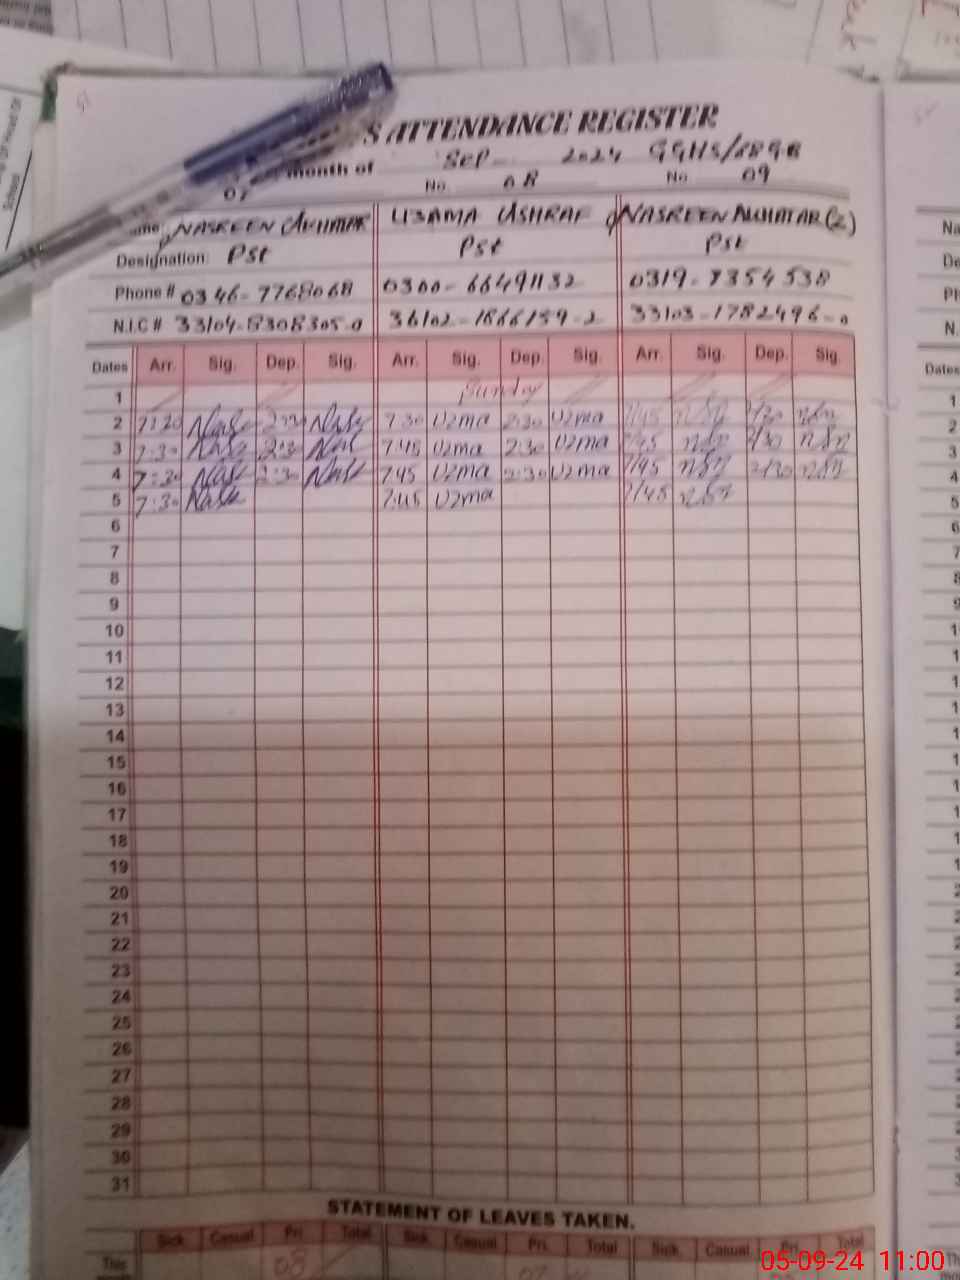 S ATTENDANCE REGISTER
month of Sep 2024 GGHS/889G
07 No. 08 No 09
NASREEN AKHTAR UZAMA ASHRAF NASREEN AKHATAR(2)
Designation: Pst Pst Pst
Phone # 0346-7768068 0300-6649132 0319-7354538
N.I.C # 33104-8308305-0 36102-1866159-2 33103-1782496-0
Dates Arr. Sig. Dep. Sig. Arr. Sig. Dep. Sig. Arr. Sig. Dep. Sig.
1 Sunday
2 7:20 Nas 2:30 Nas 7:30 Uzma 2:30 Uzma 7/45 2/30
3 7:30 Nas 2:30 Nas 7:45 Uzma 2:30 Uzma 7/45 2/30
4 7:30 Nas 2:30 Nas 7:45 Uzma 2:30 Uzma 7/45 2/30
5 7:30 Nas 7:45 Uzma 7/45
6
7
8
9
10
11
12
13
14
15
16
17
18
19
20
21
22
23
24
25
26
27
28
29
30
31
STATEMENT OF LEAVES TAKEN.
Sick. Casual. Pri. Total Sick. Casual. Pri. Total Sick. Casual. Pri. Total
This 08
05-09-24 11:00